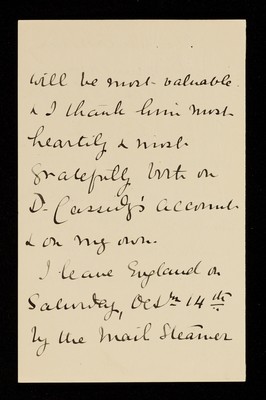 will be most valuable
& I thank him most
heartily & most
gratefully both on
Dr Cassidy's account
& on my own.
I leave England on
Saturday, Octbr 14th
by the Mail Steamer